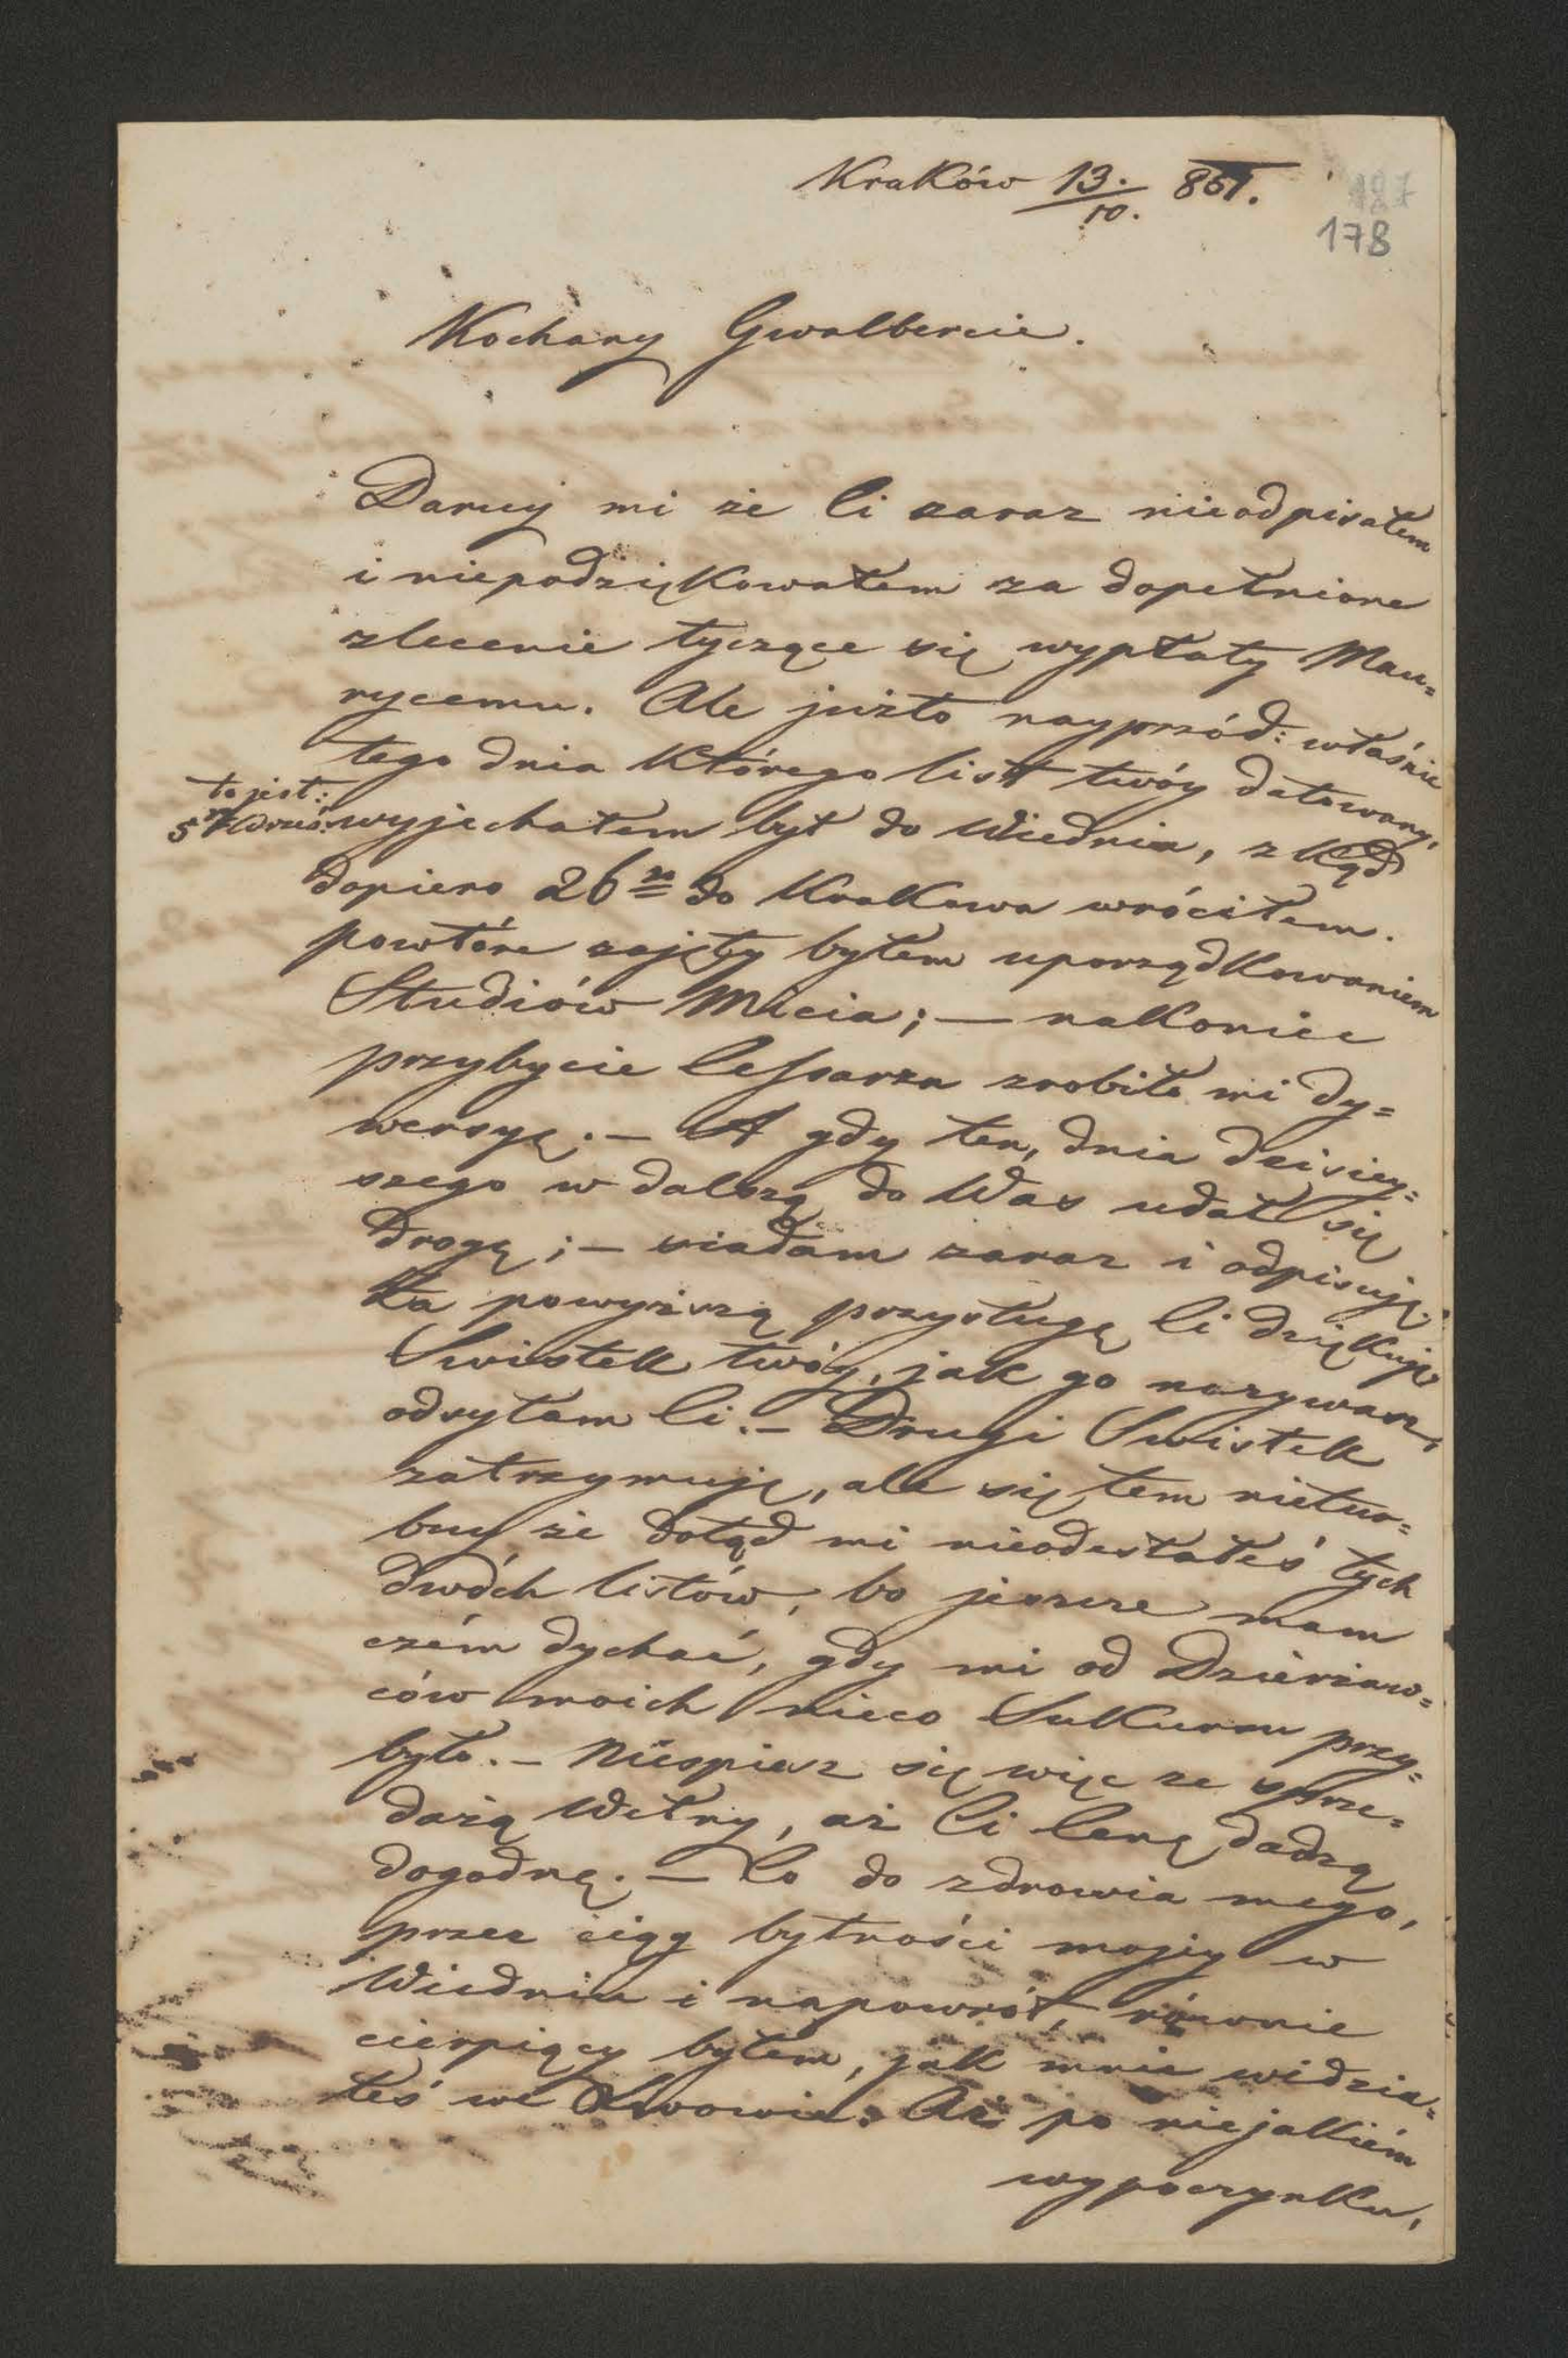 Kraków 13./10. 861.
187
178
Kochany Gwalbercie.
Daruj mi że Ci zaraz nieodpisałem
i niepodziękowałem za dopełnione
zlecenie tyczące się wypłaty Mau=
rycemu. Ale jużto nayprzód: właśnie
tego dnia którego list twóy datowany,
to jest:
5go Wrześ: wyjechałem był do Wiednia, zkąd
dopiero 26go do Krakowa wróciłem.
powtóre zajęty byłem uporządkowaniem
Studiów Micia; — nakoniec
przybycie Cessarza zrobiło mi dy=
wersyę. — A gdy ten, dnia dzisiey=
szego w dalszą do Was udał się
drogę; — siadam zaraz i odpisuję.
Za powyższą przysługę Ci dziękuję.
Swistek twóy, jak go nazywasz,
odsyłam Ci. — Drugi Swistek
zatrzymuję, ale się tem nietur=
buy że dotąd mi nieodesłałeś tych
dwóch listów, bo jeszcze mam
czém dychać, gdy mi od Dzierżaw=
ców moich nieco Sukursu przy=
było. — Niespiesz się więc ze sprze=
dażą Wełny, aż Ci Cenę dadzą
dogodną. — Co do zdrowia mego,
przez ciąg bytności mojey w
Wiedniu i napowrót, równie
cierpiący byłem, jak mnie widzia=
łeś we Lwowie. Aż po niejakiém
wypoczynku,